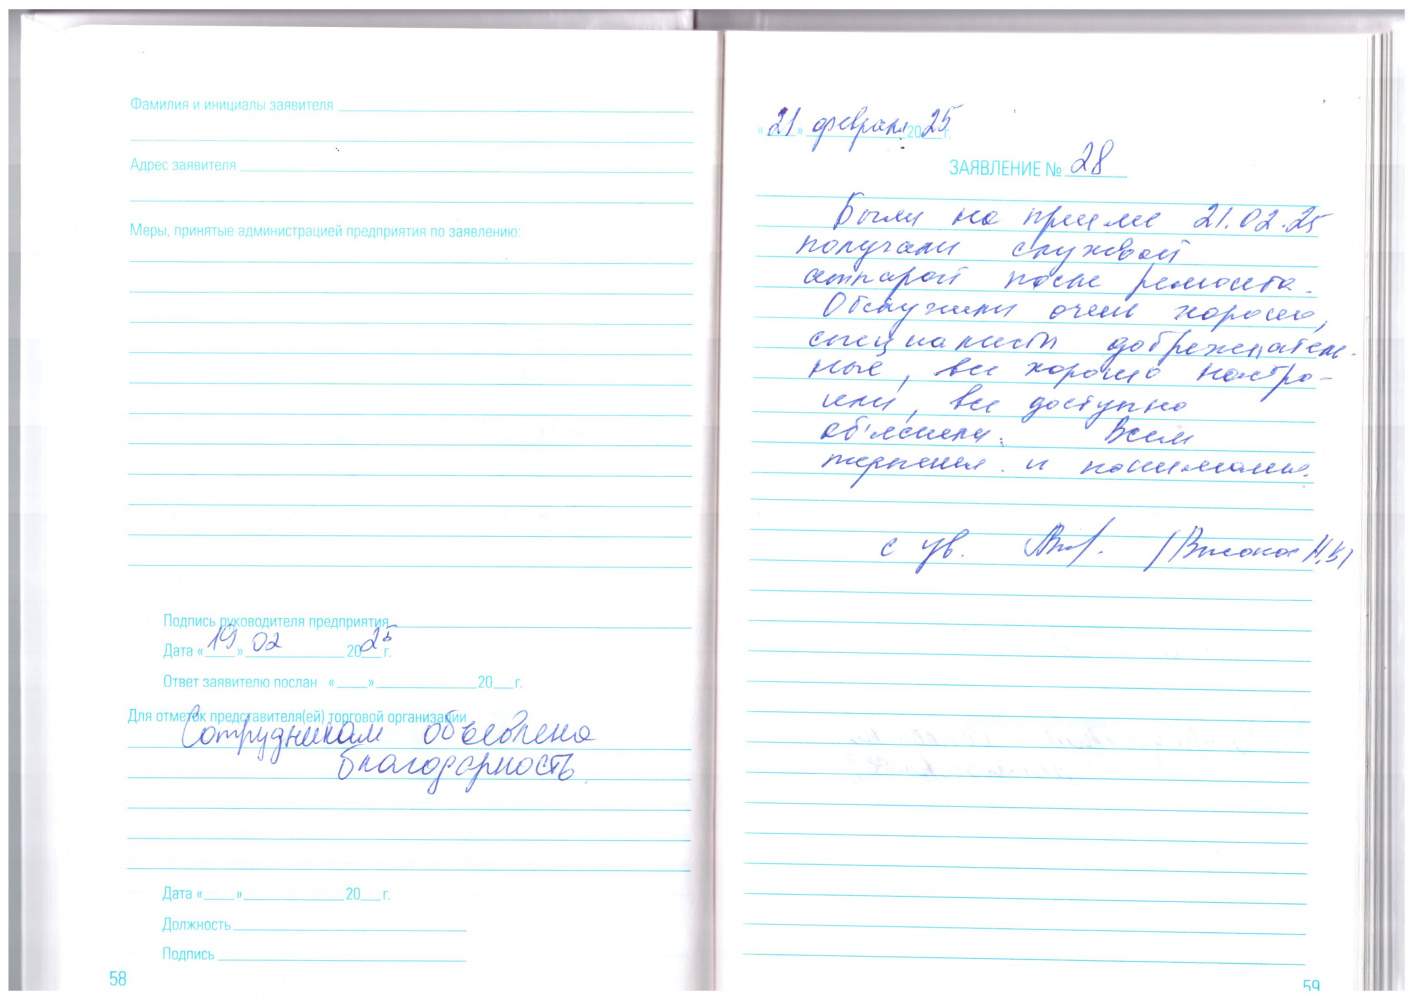 Фамилия и инициалы заявителя
Адрес заявителя
Меры, принятые администрацией предприятия по заявлению:
Подпись руководителя предприятия
Дата «19» 02 2025 г.
Ответ заявителю послан « » 20 г.
Для отметок представителя(ей) торговой организации
Сотрудникам объявлена
благодарность.
Дата « » 20 г.
Должность
Подпись
58
«21» февраля 2025 г.
ЗАЯВЛЕНИЕ № 28
Были на приеме 21.02.25
получали слуховой
аппарат после ремонта.
Обслужили очень хорошо,
специалисты доброжелатель-
ные, все хорошо настро-
или, все доступно
объяснили. Всем
терпения и понимания.
с ув. (Н.В)
59